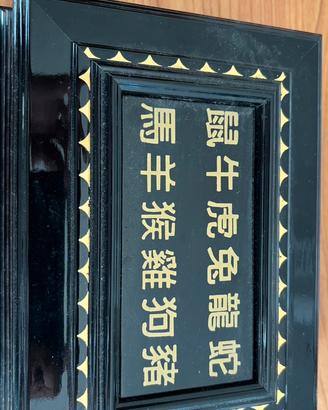 鼠牛虎兔龍蛇
馬羊猴雞狗豬